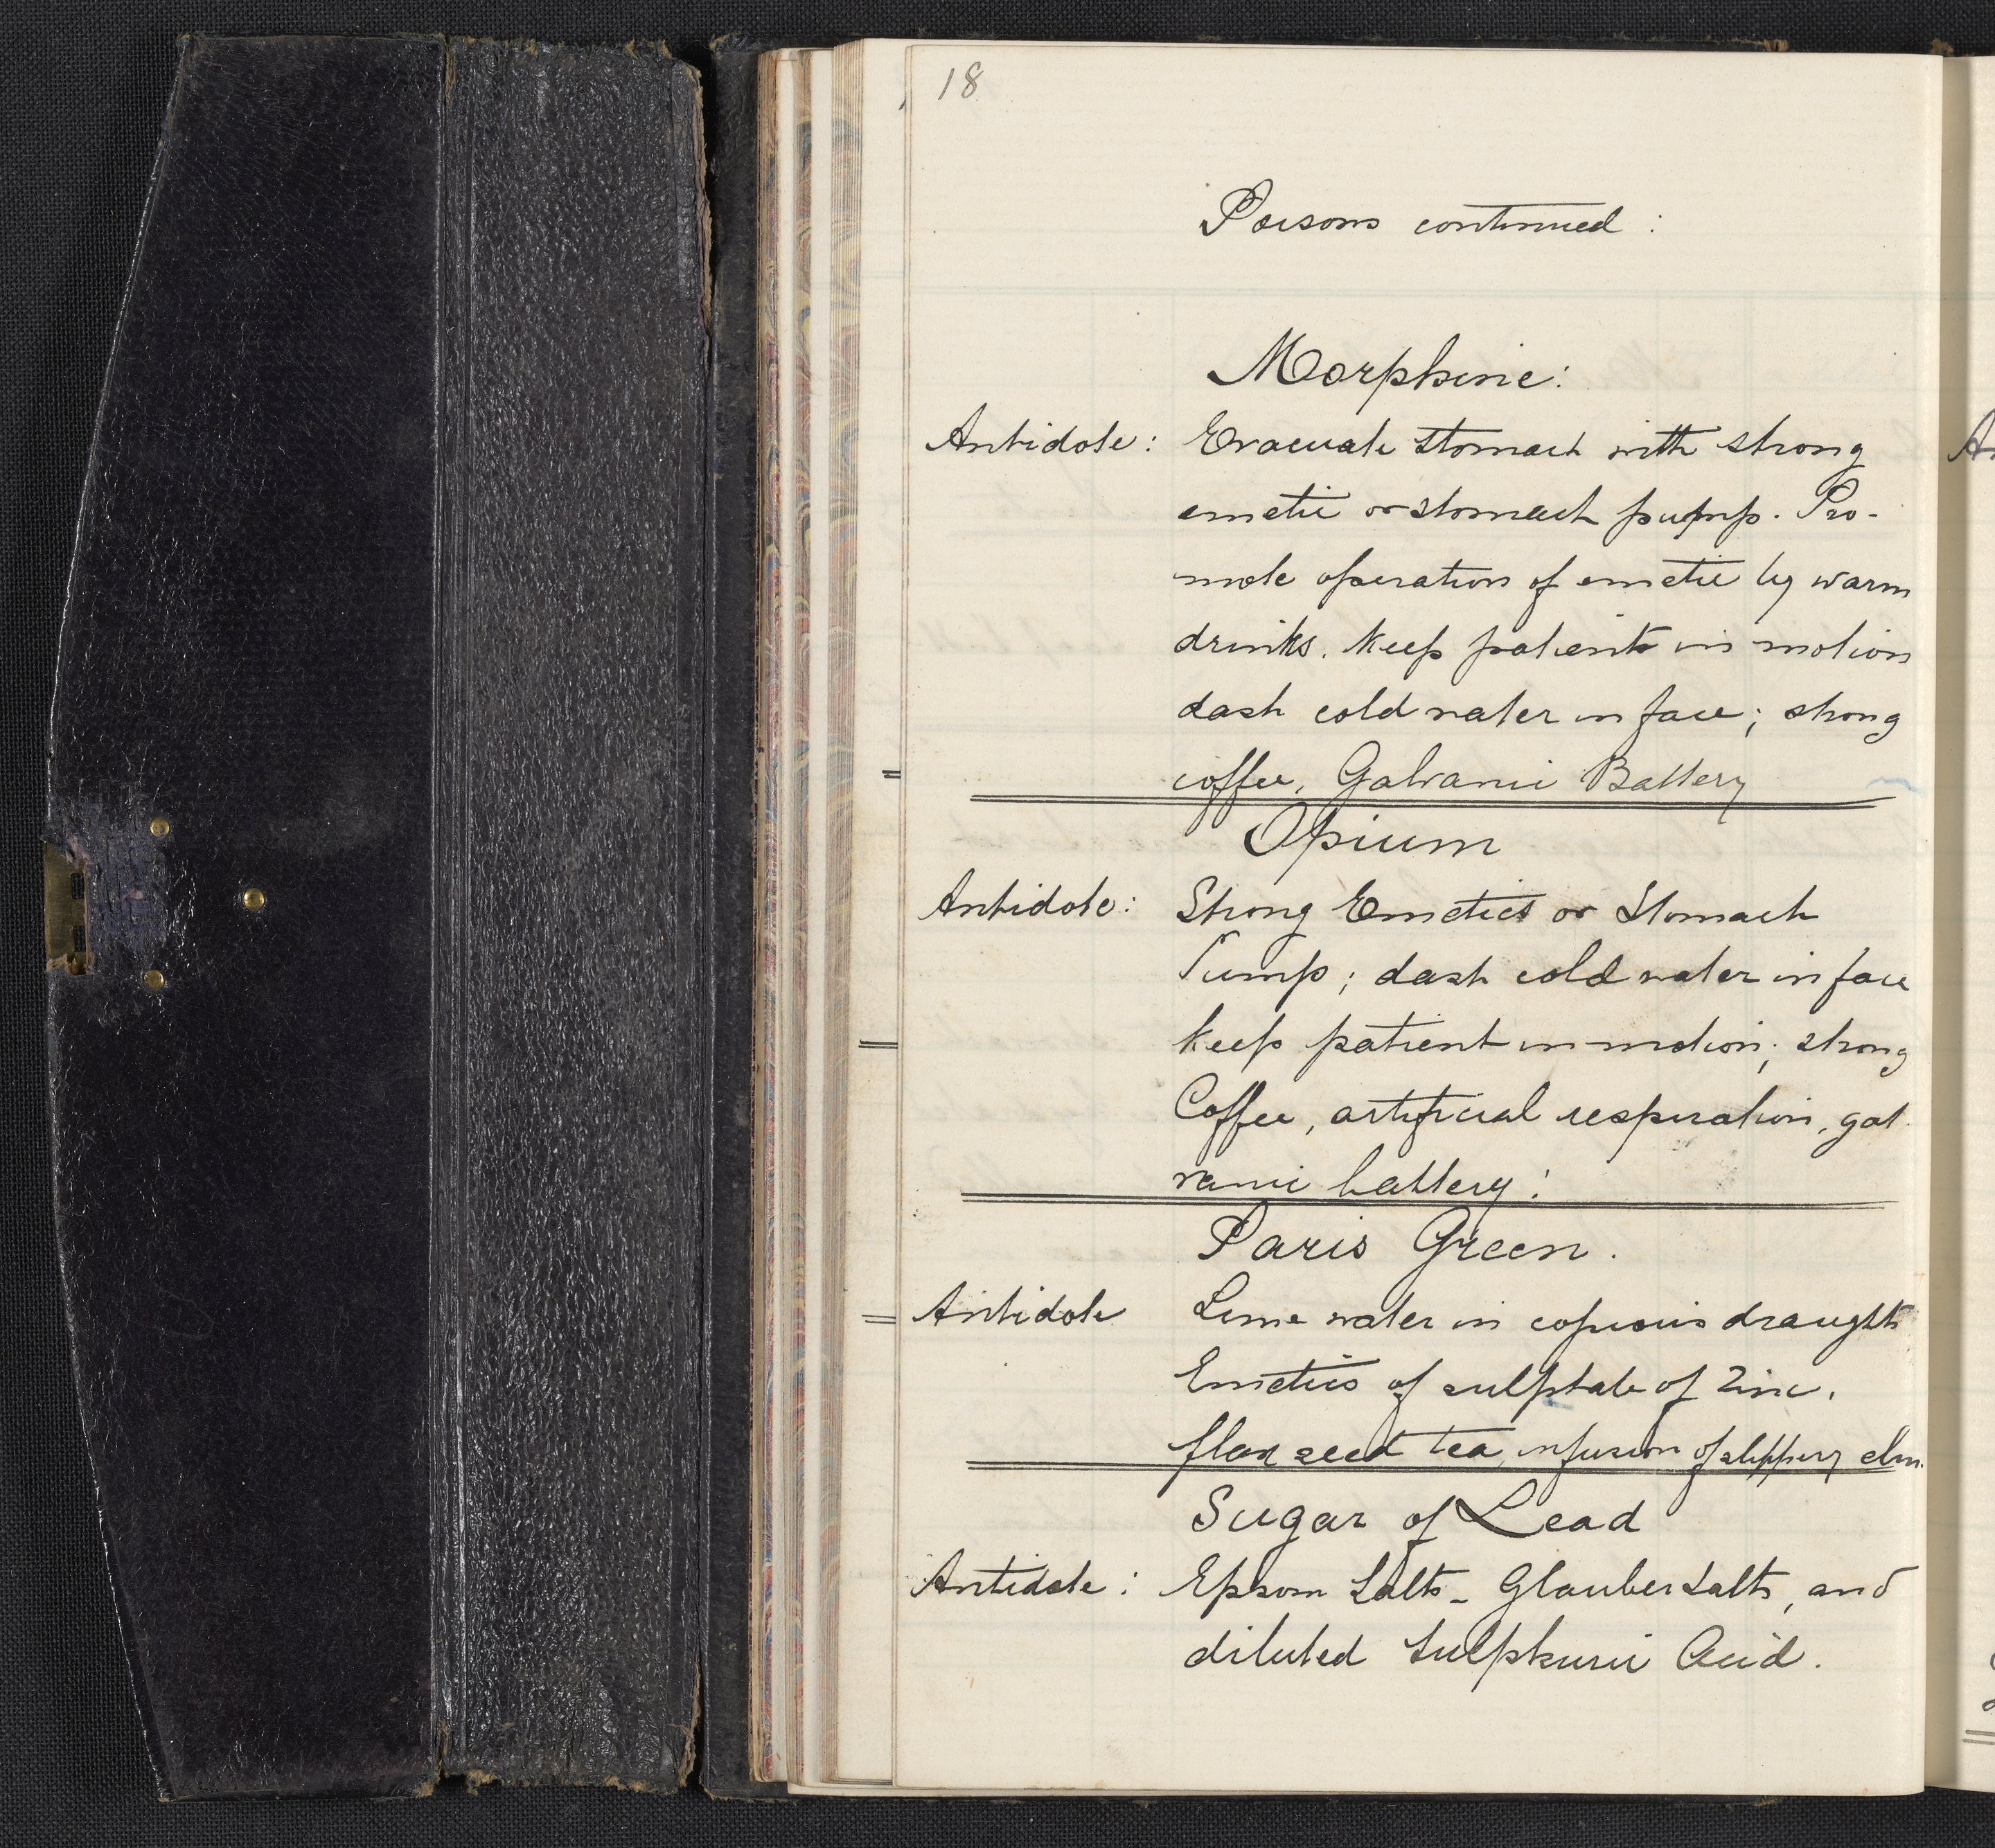 18
Poisons continued :
Morphine:
Antidote: Evacuate stomach with strong
emetic or stomach pump. Pro-
mote operation of emetic by warm
drinks. Keep patient in motion
dash cold water in face; strong
coffee, Galvanic Battery
Opium
Antidote: Strong Emetics or Stomach
Pump; dash cold water in face
keep patient in motion; strong
Coffee, artificial respiration, gal
vanic battery!
Paris Green.
Antidote Lime water in copious draughts
Emetics of sulphate of Zinc.
flax seed tea, infusion of slippery elm.
Sugar of Lead
Antidote: Epsom Salts - Glauber Salts, and
diluted Sulphuric Acid.